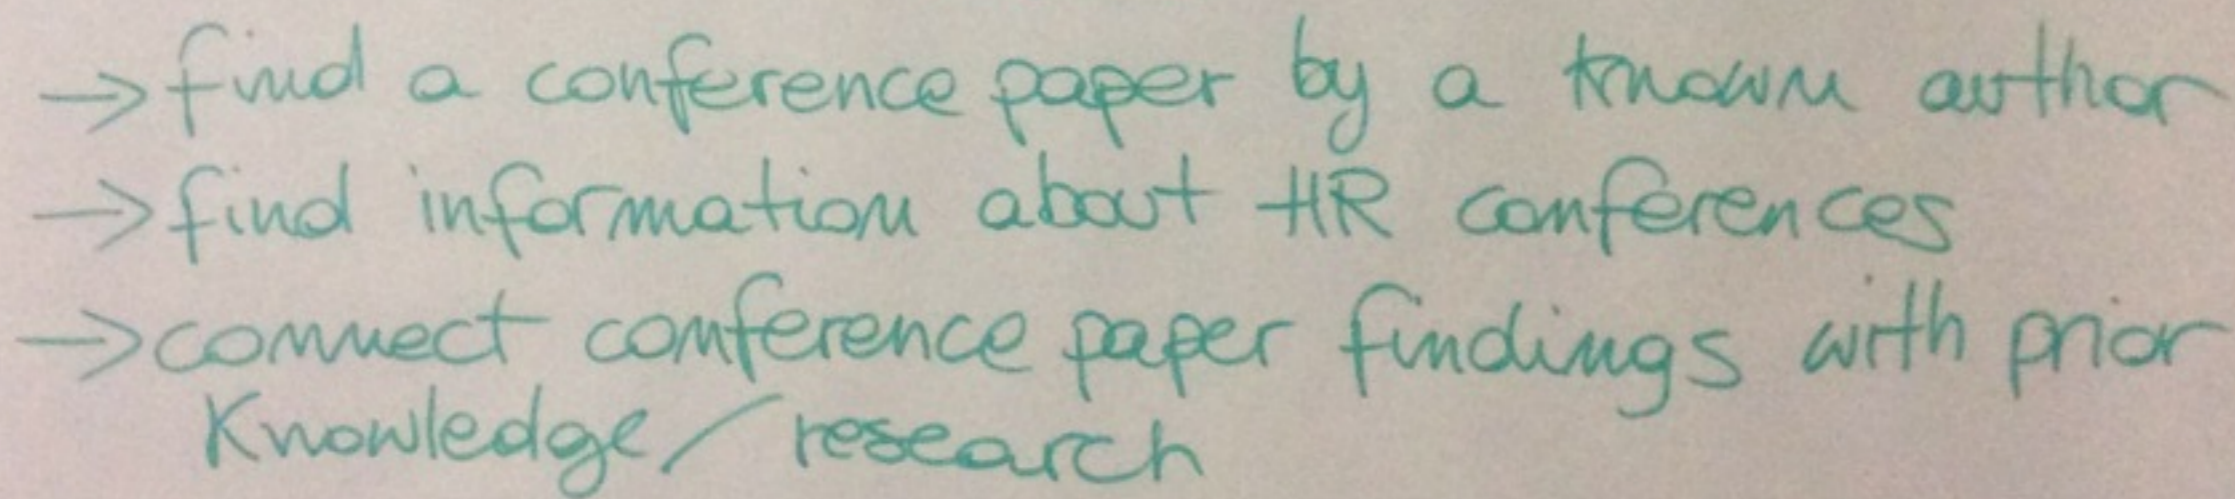 → find a conference paper by a known author
→ find information about HR conferences
→ connect conference paper findings with prior
Knowledge / research